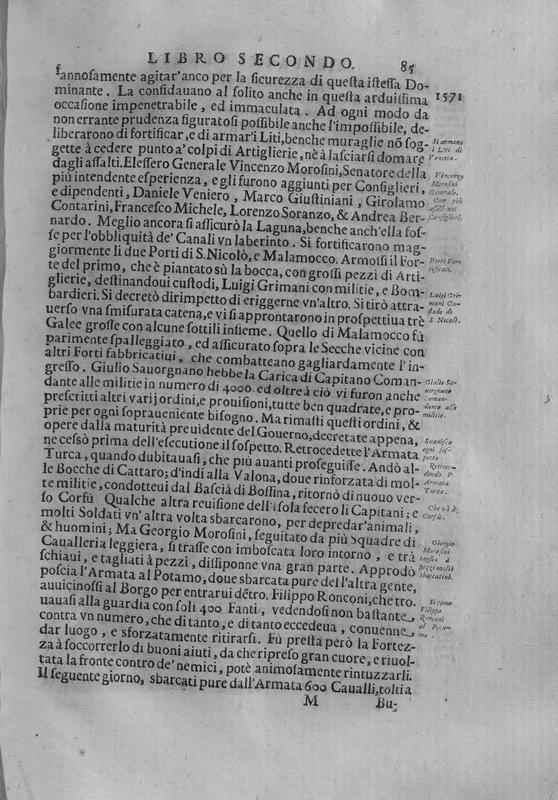 LIBRO SECONDO. 85
ſannoſamente agitar'anco per la ſicurezza di queſta iſteſſa Do-
minante. La confidauano al ſolito anche in queſta arduiſſima
occaſione impenetrabile, ed immaculata. Ad ogni modo da
non errante prudenza figuratoſi poſſibile anche l'impoſſibile, de-
liberarono di fortificar, e di armar'i Liti, benche muraglie nõ ſog-
gette à cedere punto a' colpi di Artiglierie, nè à laſciarſi domare
dagli aſſalti. Eleſſero Generale Vincenzo Moroſini, Senatore della
più intendente eſperienza, e gli furono aggiunti per Conſiglieri,
e dipendenti, Daniele Veniero, Marco Giuſtiniani, Girolamo
Contarini, Franceſco Michele, Lorenzo Soranzo, & Andrea Ber-
nardo. Meglio ancora ſi aſſicurò la Laguna, benche anch'ella foſ-
ſe per l'obbliquità de' Canali vn laberinto. Si fortificarono mag-
giormente li due Porti di S. Nicolò, e Malamocco. Armoſſi il For-
te del primo, che è piantato sù la bocca, con groſſi pezzi di Arti-
glierie, deſtinandoui cuſtodi, Luigi Grimani con militie, e Bom-
bardieri. Si decretò dirimpetto di eriggerne vn'altro. Si tirò attra-
uerſo vna ſmiſurata catena, e vi ſi approntarono in proſpettiua trè
Galee groſſe con alcune ſottili inſieme. Quello di Malamocco fù
parimente ſpalleggiato, ed aſſicurato ſopra le Secche vicine con
altri Forti fabbricatiui, che combatteano gagliardamente l'in-
greſſo. Giulio Sauorgnano hebbe la Carica di Capitano Coman-
dante alle militie in numero di 4000. ed oltre à ciò vi furon anche
preſcritti altri varij ordini, e prouiſioni, tutte ben quadrate, e pro-
prie per ogni sopraueniente biſogno. Ma rimaſti queſti ordini, &
opere dalla maturità preuidente del Gouerno, decretate appena,
ne ceſsò prima dell'eſecutione il ſoſpetto. Retrocedette l'Armata
Turca, quando dubitauaſi, che più auanti proſeguiſſe. Andò al-
le Bocche di Cattaro; d'indi alla Valona, doue rinforzata di mol-
te militie, condotteui dal Baſcià di Boſſina, ritornò di nuouo ver-
ſo Corfù Qualche altra reuiſione dell'iſola fecero li Capitani; e
molti Soldati vn'altra volta sbarcarono, per depredar'animali,
& huomini; Ma Georgio Moroſini, ſeguitato da più Squadre di
Caualleria leggiera, ſi traſſe con imboſcata loro intorno, e trà
ſchiaui, e tagliati à pezzi, diſſiponne vna gran parte. Approdò
poſcia l'Armata al Potamo, doue sbarcata pure dell'altra gente,
auuicinoſſi al Borgo per entrarui dẽtro. Filippo Ronconi, che tro-
uauaſi alla guardia con ſoli 400 Fanti, vedendoſi non baſtante,
contra vn numero, che di tanto, e di tanto eccedeua, conuenne
dar luogo, e sforzatamente ritirarſi. Fù preſta però la Fortez-
za à ſoccorrerlo di buoni aiuti, da che ripreſo gran cuore, e riuol-
tata la fronte contro de' nemici, potè animoſamente rintuzzarli.
Il ſeguente giorno, sbarcati pure dall'Armata 600 Caualli, tolti a
M Bu-
1571
Si armano
i Liti di
Venetia.
Vincenzo
Moroſini
Generale.
Con più
aſſiſtenti
Conſiglieri.
Porti For-
tificati.
Luigi Gri-
mani Cu-
ſtode di
S. Nicolò.
Giulio Sa-
uorgnano
Coman-
dante alle
militie.
Suaniſce
ogni ſoſ-
petto.
Retroce-
dendo l'
Armata
Turca.
Che và à
Corfù.
Giorgio
Moroſini
Filippo
Ronconi
al Pota-
mo.